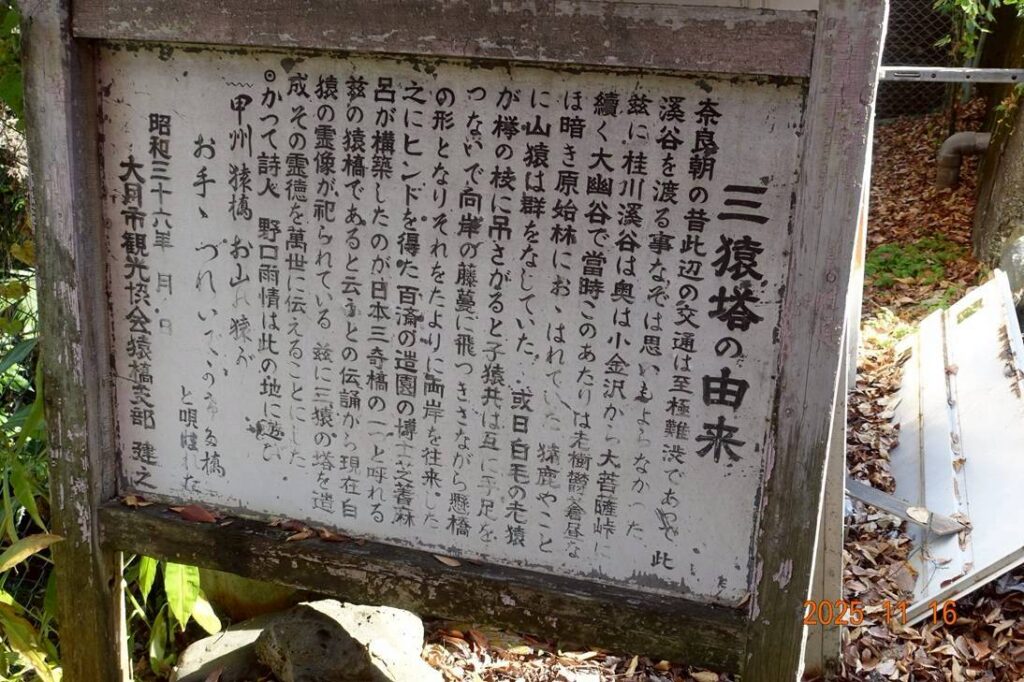 三猿塔の由来
奈良朝の昔此辺の交通は至極難渋であって 此
溪谷を渡る事などは思いもよらなかった
玆に桂川溪谷は奥は小金沢から大菩薩峠に
續く大幽谷で當時このあたりは老樹鬱蒼昼な
ほ暗き原始林におゝはれていた 猪鹿やこと
に山猿は群をなしていた 或日白毛の老猿
が欅の枝に吊さがると子猿共は互に手足を
つないで向岸の藤蔓に飛つきさながら懸橋
の形となりそれをたよりに両岸を往来した
之にヒンドを得た百済の造園の博士芝耆麻
呂が構築したのが日本三奇橋の一と呼れる
玆の猿橋であると云うとの伝誦から現在白
猿の霊像が祀られている 玆に三猿の塔を造
成その霊徳を萬世に伝えることにした
⊙かつて詩人 野口雨情は此の地に遊び
甲州猿橋 お山の猿が
お手ゝづれ
橋
と唄はれた
昭和三十六年 月 日
大月市観光協会猿橋支部 建之
2025 11 16